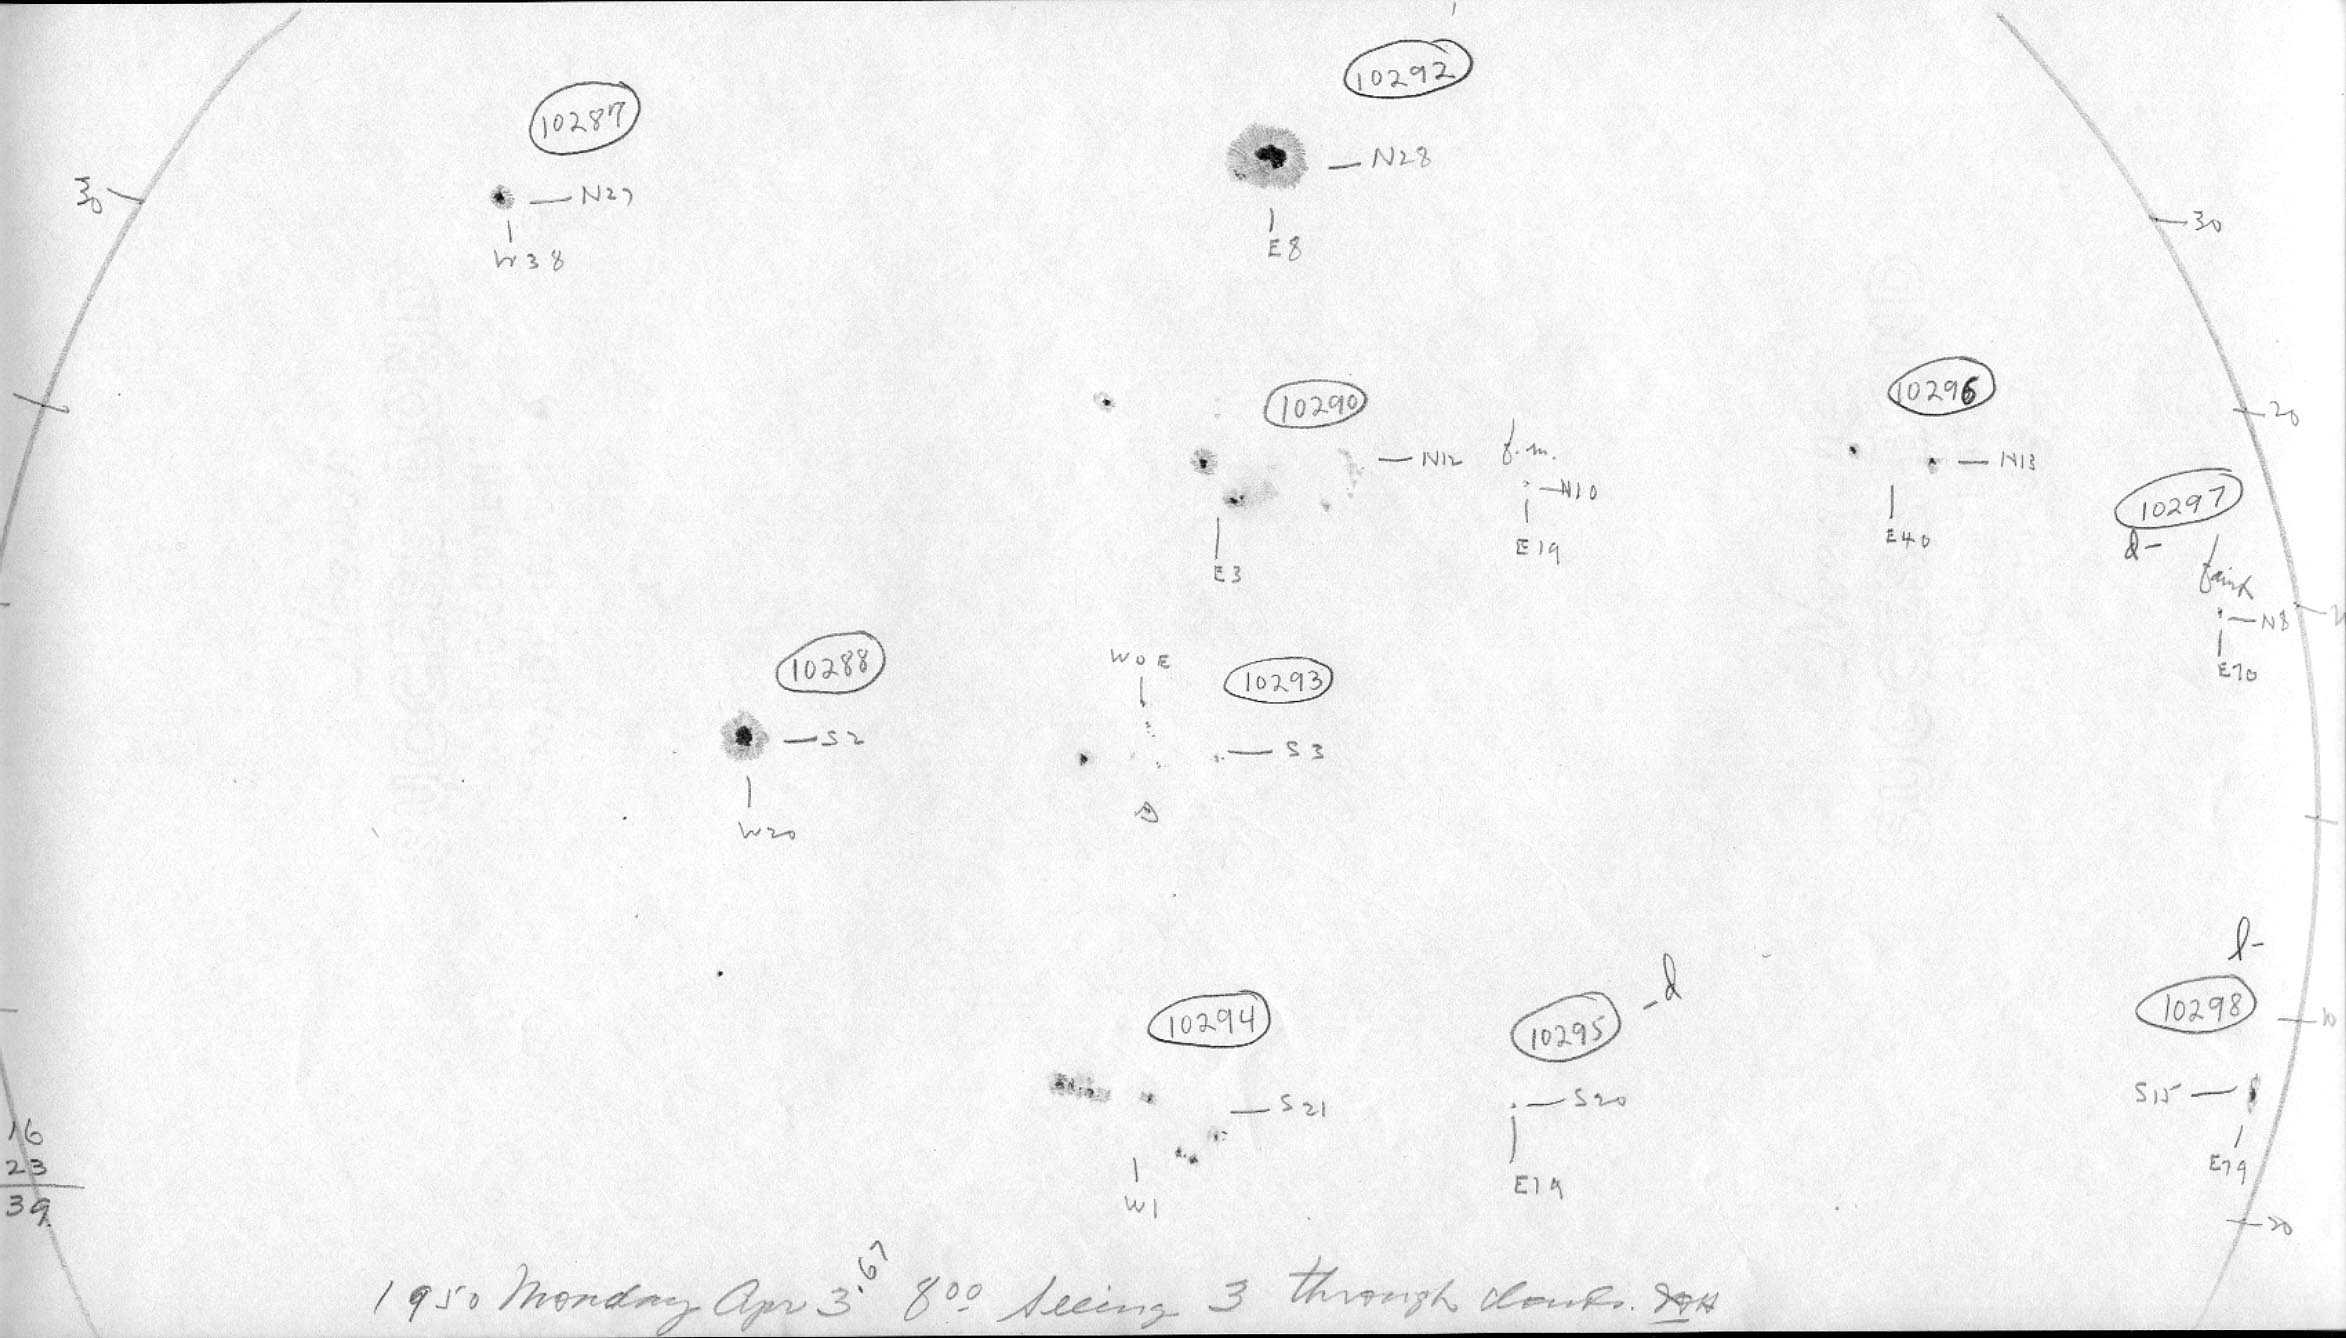 10292
10287
N28
30
N27
30
E8
W38
10296
10290
20
N12
f.m.
N13
N10
10297
E40
d-
E19
E3
faint
N8
10288
W 0 E
10293
E70
S2
S3
W20
l-
-d
10298
10294
10295
10
S15
S20
S21
16
23
39
E79
E19
W1
20
1950 Monday Apr 3.67 8 00 Seeing 3 through clouds.